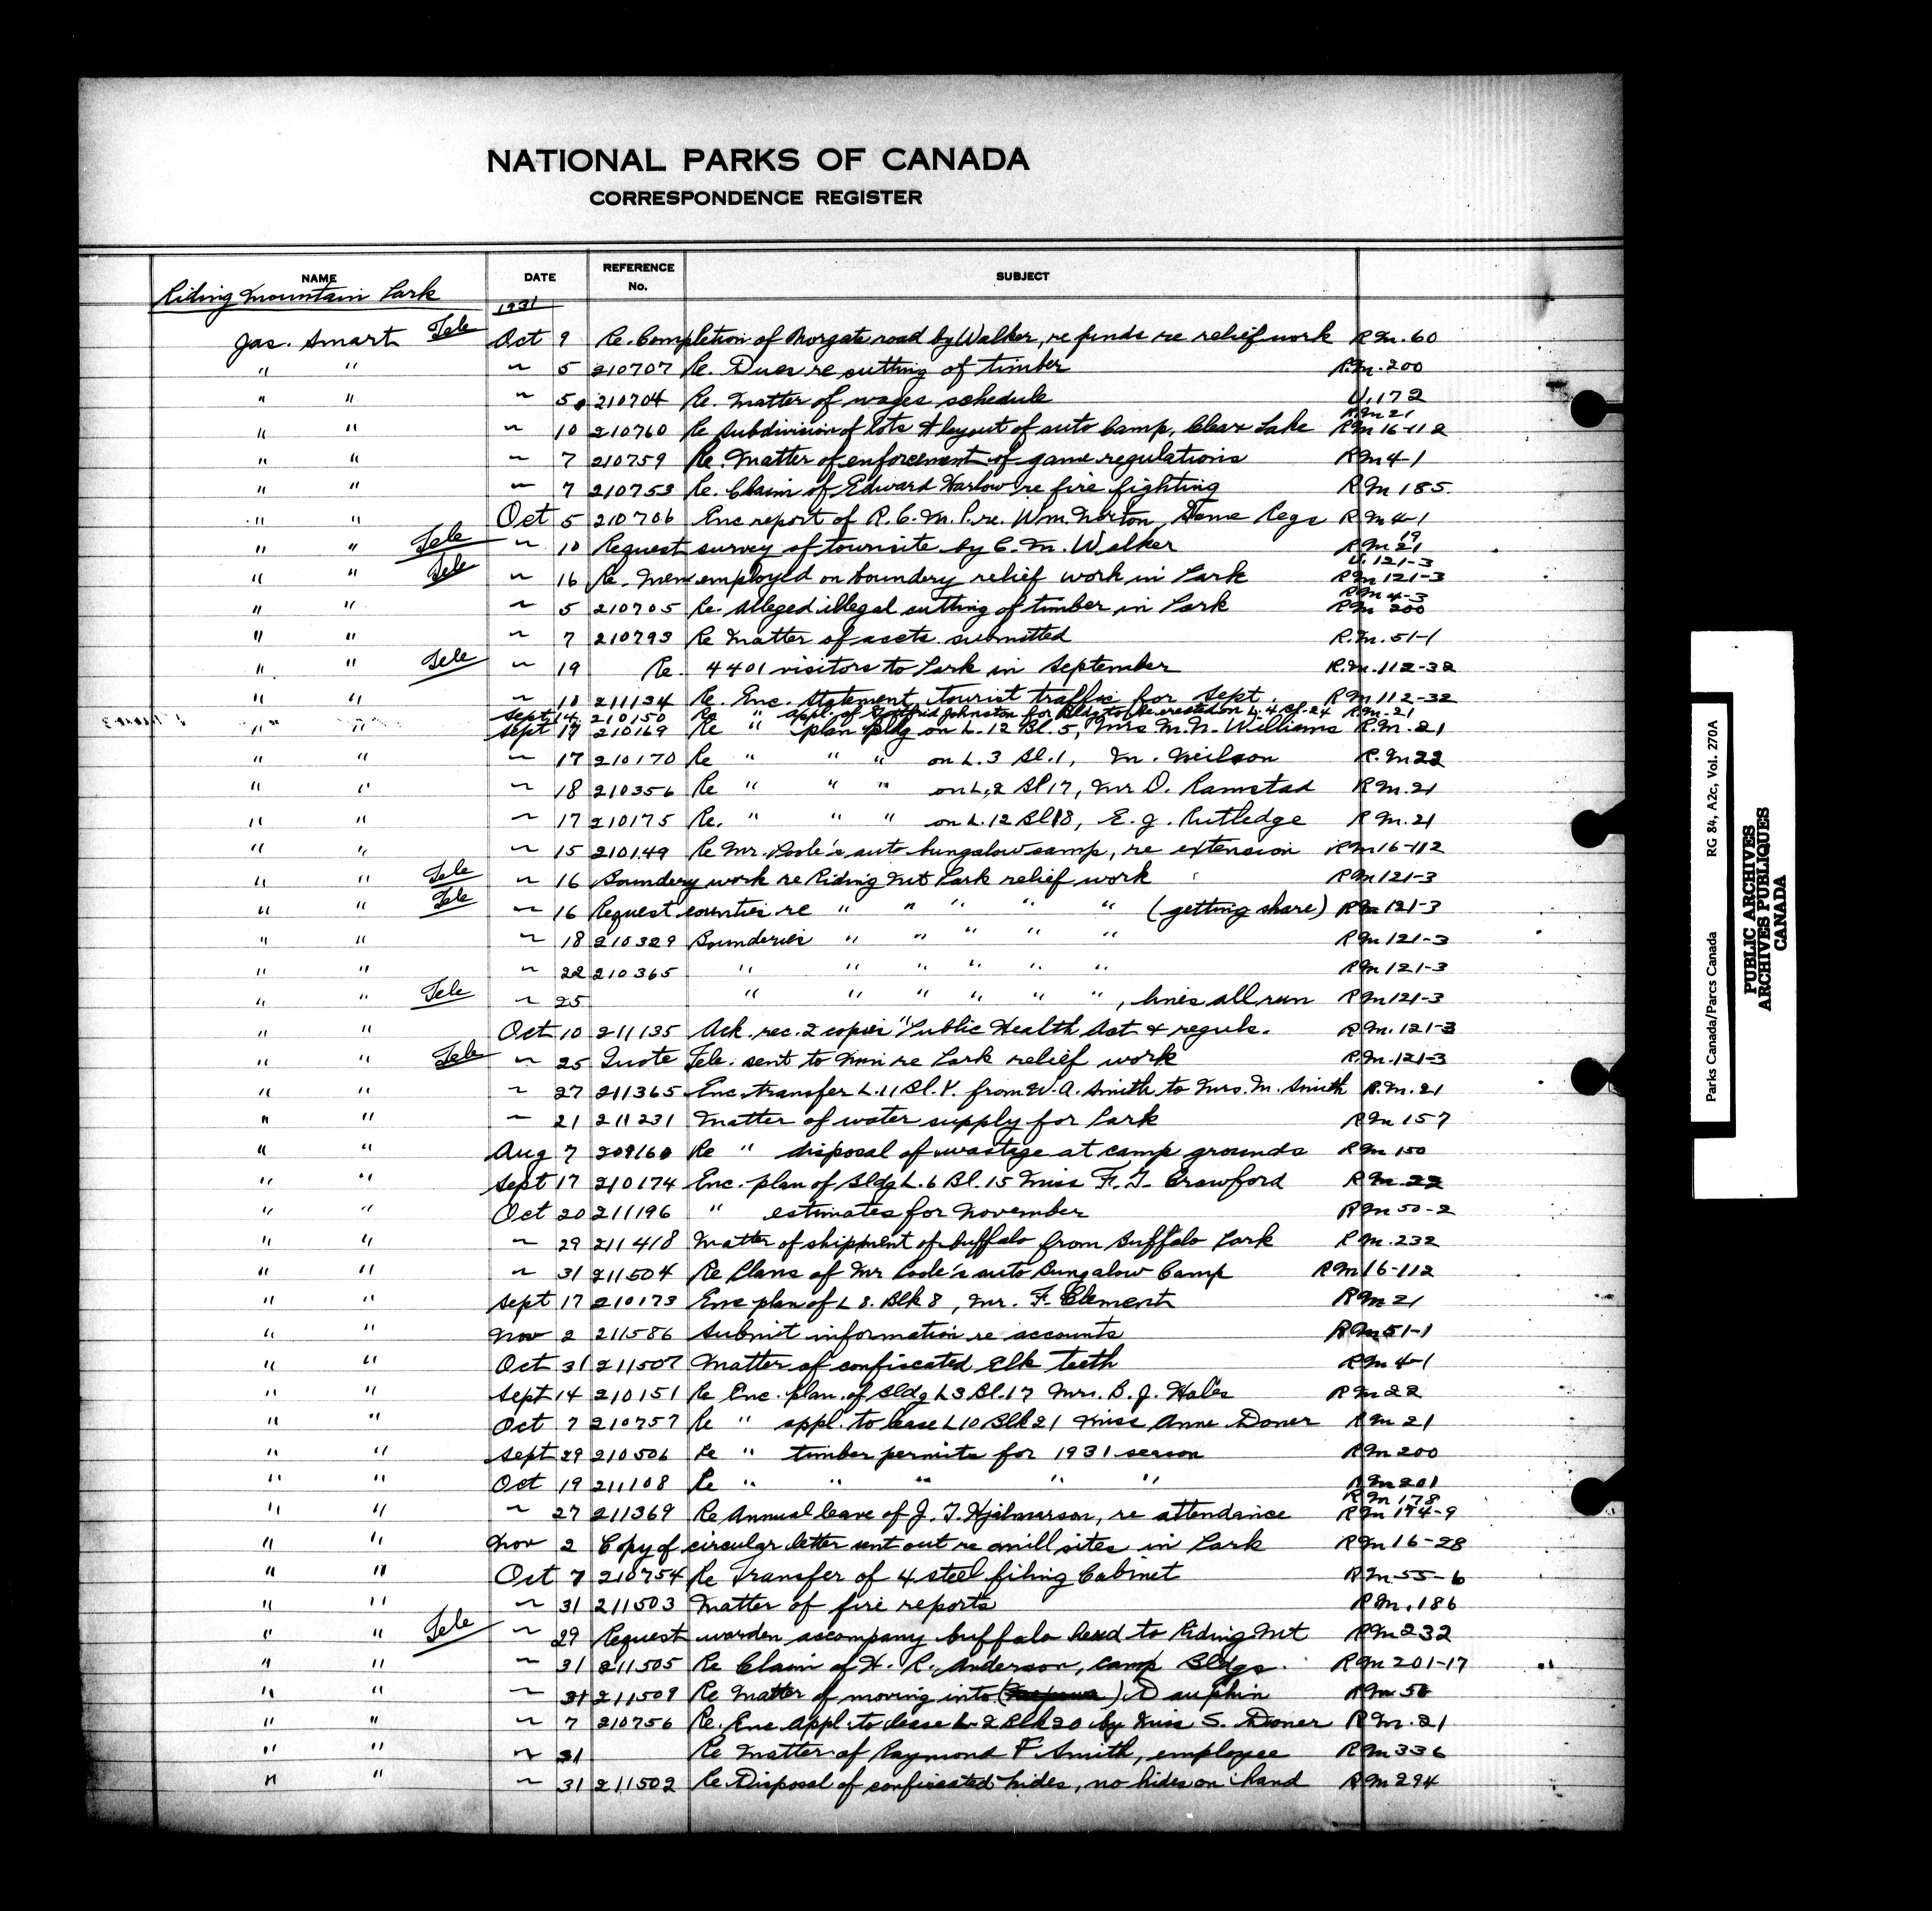 NATIONAL PARKS OF CANADA
CORRESPONDENCE REGISTER
NAME DATE REFERENCE No. SUBJECT
Riding Mountain Park 1931
Jas. Smart Tele Oct 9 Re. Completion of Norgate road by Walker, re funds re relief work R.M. 60
" " ~ 5 210707 Re. Dues re cutting of timber R.M. 200
" " ~ 5 210704 Re. Matter of wages schedule U. 172
" " ~ 10 210760 Re Subdivision of lots & layout of auto Camp, Clear Lake R.M 21 RM 16-112
" " ~ 7 210759 Re. Matter of enforcement of game regulations RM 41
" " ~ 7 210753 Re. Claim of Edward Harlow re fire fighting RM 185.
" " Oct 5 210706 Enc report of R.C.M.P. re. Wm. Norton, Game Regs RM 4-1
" " Tele ~ 10 Request survey of townsite by C. M. Walker 19 RM 21
" " Tele ~ 16 Re. Men employed on boundery relief work in Park U. 121-3 RM 121-3
" " ~ 5 210705 Re. Alleged illegal cutting of timber in Park RM 4-3 RM 200
" " ~ 7 210793 Re Matter of assets submitted R.M. 51-1
" " Tele ~ 19 Re. 4401 visitors to Park in September R.M. 112-32
" " ~ 10 211134 Re. Enc. Statement tourist traffic for Sept. RM 112-32
Sept 14 210150 Re " appl. of Johnston for Bldg to be erected on L. 4 Bl. 24 RM. 21
" " Sept 17 210169 Re " plan Bldg on L. 12 Bl. 5, Mrs M. N. Williams R.M. 21
" " ~ 17 210170 Re " " " on L. 3 Bl. 1, M. Neilson R. M 22
" " ~ 18 210356 Re " " " on L. 2 Bl 17, Mr O. Ramstad RM. 21
" " ~ 17 210175 Re. " " " on L. 12 Bl 18, E. J. Rutledge R M. 21
" " ~ 15 210149 Re Mr. Poole's auto bungalow camp, re extension RM 16-112
" " Tele ~ 16 Boundery work re Riding Mt Park relief work RM 121-3
" " Tele ~ 16 Request counties re " " " " " (getting share) RM 121-3
" " ~ 18 210329 Bounderies " " " " " RM 121-3
" " ~ 22 210365 " " " " " " RM 121-3
" " Tele ~ 25 " " " " " ", lines all run RM 121-3
" " Oct 10 211135 Ack. rec. 2 copies "Public Health Act & reguls. RM. 121-3
" " Tele ~ 25 Quote Tele. sent to Min re Park relief work R.M. 121-3
" " ~ 27 211365 Enc. transfer L. 11 Bl. Y. from W. A. Smith to Mrs. M. Smith R.M. 21
" " ~ 21 211231 Matter of water supply for Park RM 157
" " Aug 7 209160 Re " disposal of wastage at camp grounds RM 150
" " Sept 17 210174 Enc. plan of Bldg L. 6 Bl. 15 Miss F. T. Crawford RM 22
" " Oct 20 211196 " estimates for November RM 50-2
" " ~ 29 211418 Matter of shipment of buffalo from Buffalo Park R M. 232
" " ~ 31 211504 Re Plans of Mr Poole's auto Bungalow Camp RM 16-112
" " Sept 17 210173 Enc plan of L 8. Blk 8, Mr. F. Clement RM 21
" " Nov 2 211586 Submit information re accounts RM 51-1
" " Oct 31 211507 Matter of confiscated Elk teeth RM 4-1
" " Sept 14 210151 Re Enc. plan. of Bldg L 3 Bl. 17 Mrs. B. J. Hales RM 22
" " Oct 7 210757 Re " appl. to lease L 10 Blk 21 Miss Anne Doner RM 21
" " Sept 29 210506 Re " timber permits for 1931 season RM 200
" " Oct 19 211108 Re " " " " " RM 201
" " ~ 27 211369 Re Annual leave of J. T. Hjalmarson, re attendance RM 178 RM 174-9
" " Nov 2 Copy of circular letter sent out re mill sites in Park RM 16-28
" " Oct 7 210754 Re Transfer of 4 steel filing Cabinet RM 55-6
" " ~ 31 211503 Matter of fire reports RM. 186
" " Tele ~ 29 Request warden accompany buffalo herd to Riding Mt RM 232
" " ~ 31 211505 Re Claim of H. R. Anderson, camp Bldgs. RM 201-17
" " ~ 31 211509 Re Matter of moving into ( ) Dauphin RM 50
" " ~ 7 210756 Re. Enc Appl. to lease L. 2 Blk 20 by Miss S. Doner RM. 21
" " ~ 31 Re Matter of Raymond F Smith, employee RM 336
" " ~ 31 211502 Re Disposal of confiscated hides, no hides on hand RM 294
Parks Canada/Parcs Canada RG 84, A2c, Vol. 270A
PUBLIC ARCHIVES
ARCHIVES PUBLIQUES
CANADA